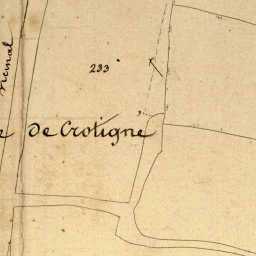 233
De Crotigné